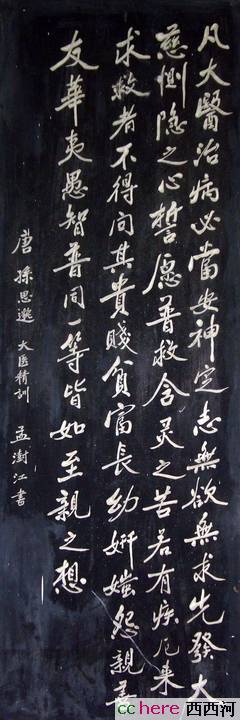 凡大醫治病必當安神定志無欲無求先發大
慈惻隐之心誓愿普救含灵之苦若有疾厄来
求救者不得问其貴賤貧富長幼妍媸怨親善
友華夷愚智普同一等皆如至親之想
唐 孫思邈 大医精訓 孟澍江書
cchere 西西河